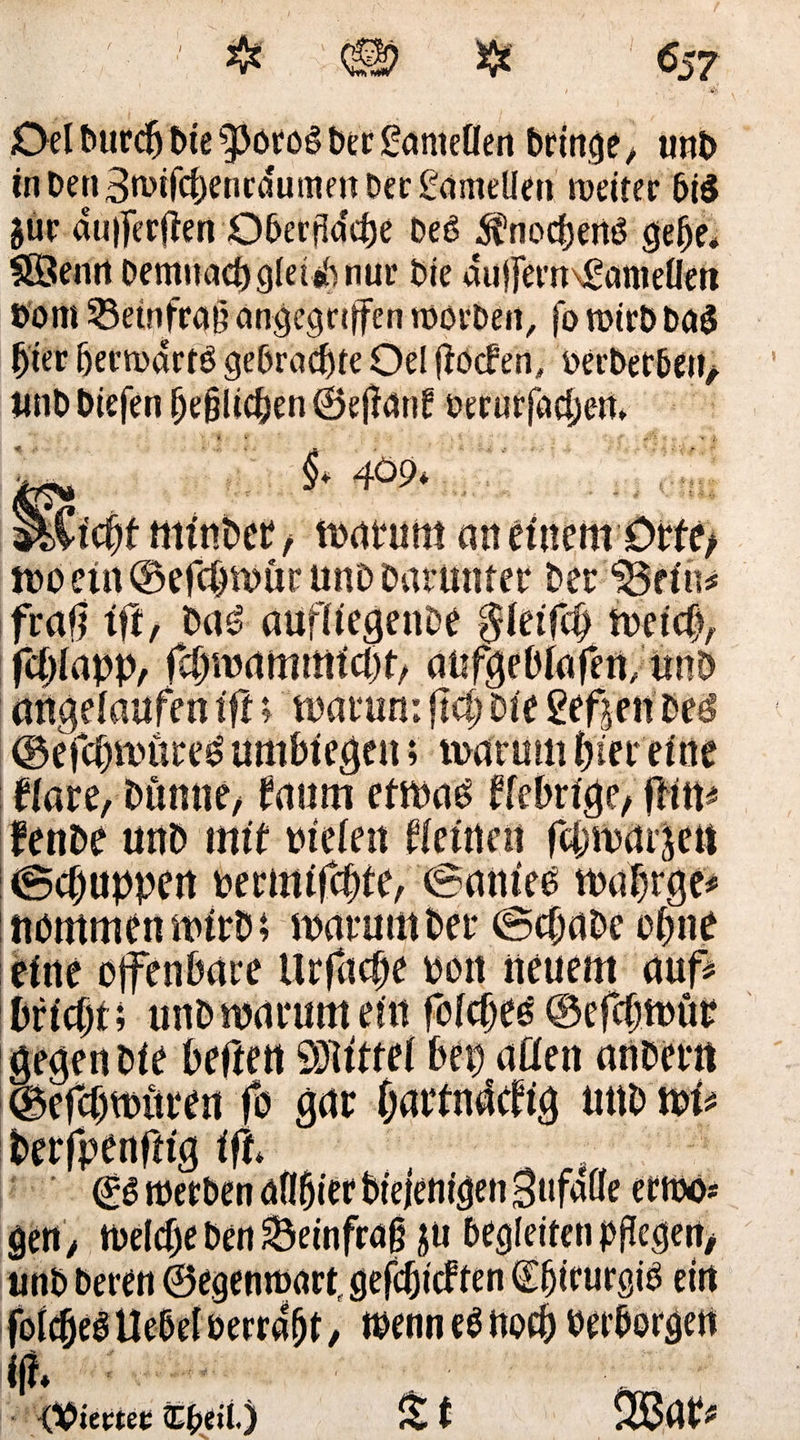 657
Oel durch die Poros der Lamellen bringe, und
in den Zwischenräumen der Lamellen weiter biß
zur äussersten Oberfläche des Knochens gehe.
Wenn demnach gleich nur die äussern Lamellen
vom Beinfraß angegriffen worden, so wird das
hier herwärts gebrachte Oel stocken, verderben,
und diesen heßlichen Gestank verursachen.
§. 409.
Nicht minder, warum an einem Orte,
wo ein Geschwür und darunter der Bein-
fraß ist, das aufliegende Fleisch weich,
schlapp, schwammicht, aufgeblasen, und
angelaufen ist; warum sich die Lefzen des
Geschwüres umbiegen; warum hier eine
klare, dünne, kaum etwas klebrige, stin-
kende und mit vielen kleinen schwarzen
Schuppen vermischte, Sanies wahrge-
nommen wird; warum der Schade ohne
eine offenbare Ursache von neuem auf-
bricht; und warum ein solches Geschwür
gegen die besten Mittel bey allen andern
Geschwüren so gar hartnäckig und wi-
derspenstig ist.
Es werden allhier diejenigen Zufälle erwo-
gen, welche den Beinfraß zu begleiten pflegen,
und deren Gegenwart geschickten Chirurgis ein
solches Uebel verräht, wenn es noch verborgen
ist.
(Vierter Theil.) Tt War-